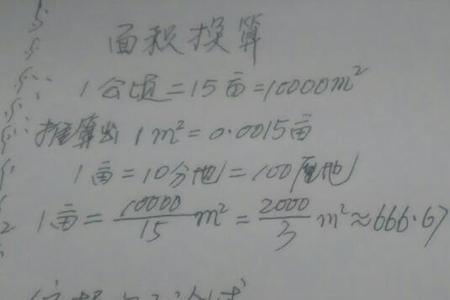 面积换算
1公顷=15亩=10000m²
推算出 1m²=0.0015亩
1亩=10分地=100厘地
1亩=10000/15 m²=2000/3 m²≈666.67